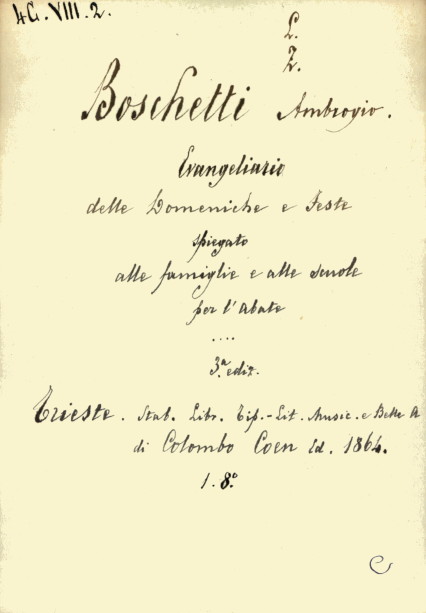 4G. VIII. 2.
L.
Z.
Boschetti Ambrogio.
Evangeliario
delle Domeniche e Feste
spiegato
alle famiglie e alle scuole
per l'Abate
....
3.a ediz.
Trieste. Stab. Libr. Tip.-Lit. Music. e Belle A
di Colombo Coen Ed. 1864.
1. 8.°